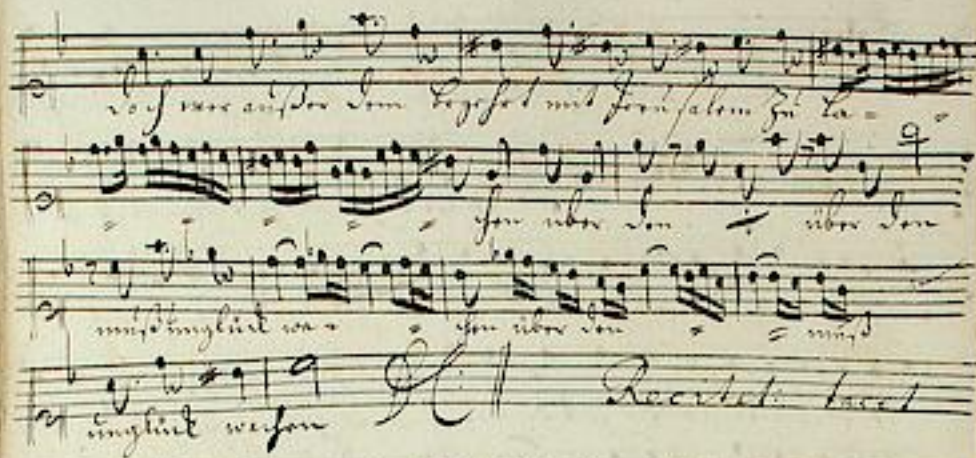 doch wer außer dem begehrt mit Jerusalem zu la=
= = = = = chen über den ·/· über den
muß unglück wa= = chen über den = = muß
unglück wachen Recitat: tacet